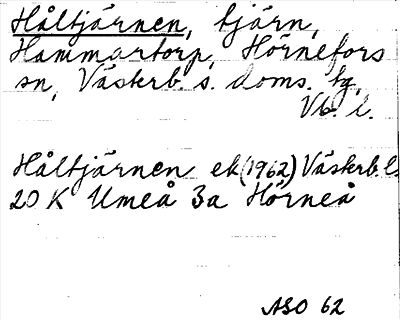 Håltjärnen, tjärn,
Hammartorp, Hörnefors
sn, Västerb. s. doms. tg,
Vb. l.
Håltjärnen ek (1962) Västerb. l.
20 K Umeå 3a Hörneå
ASO 62